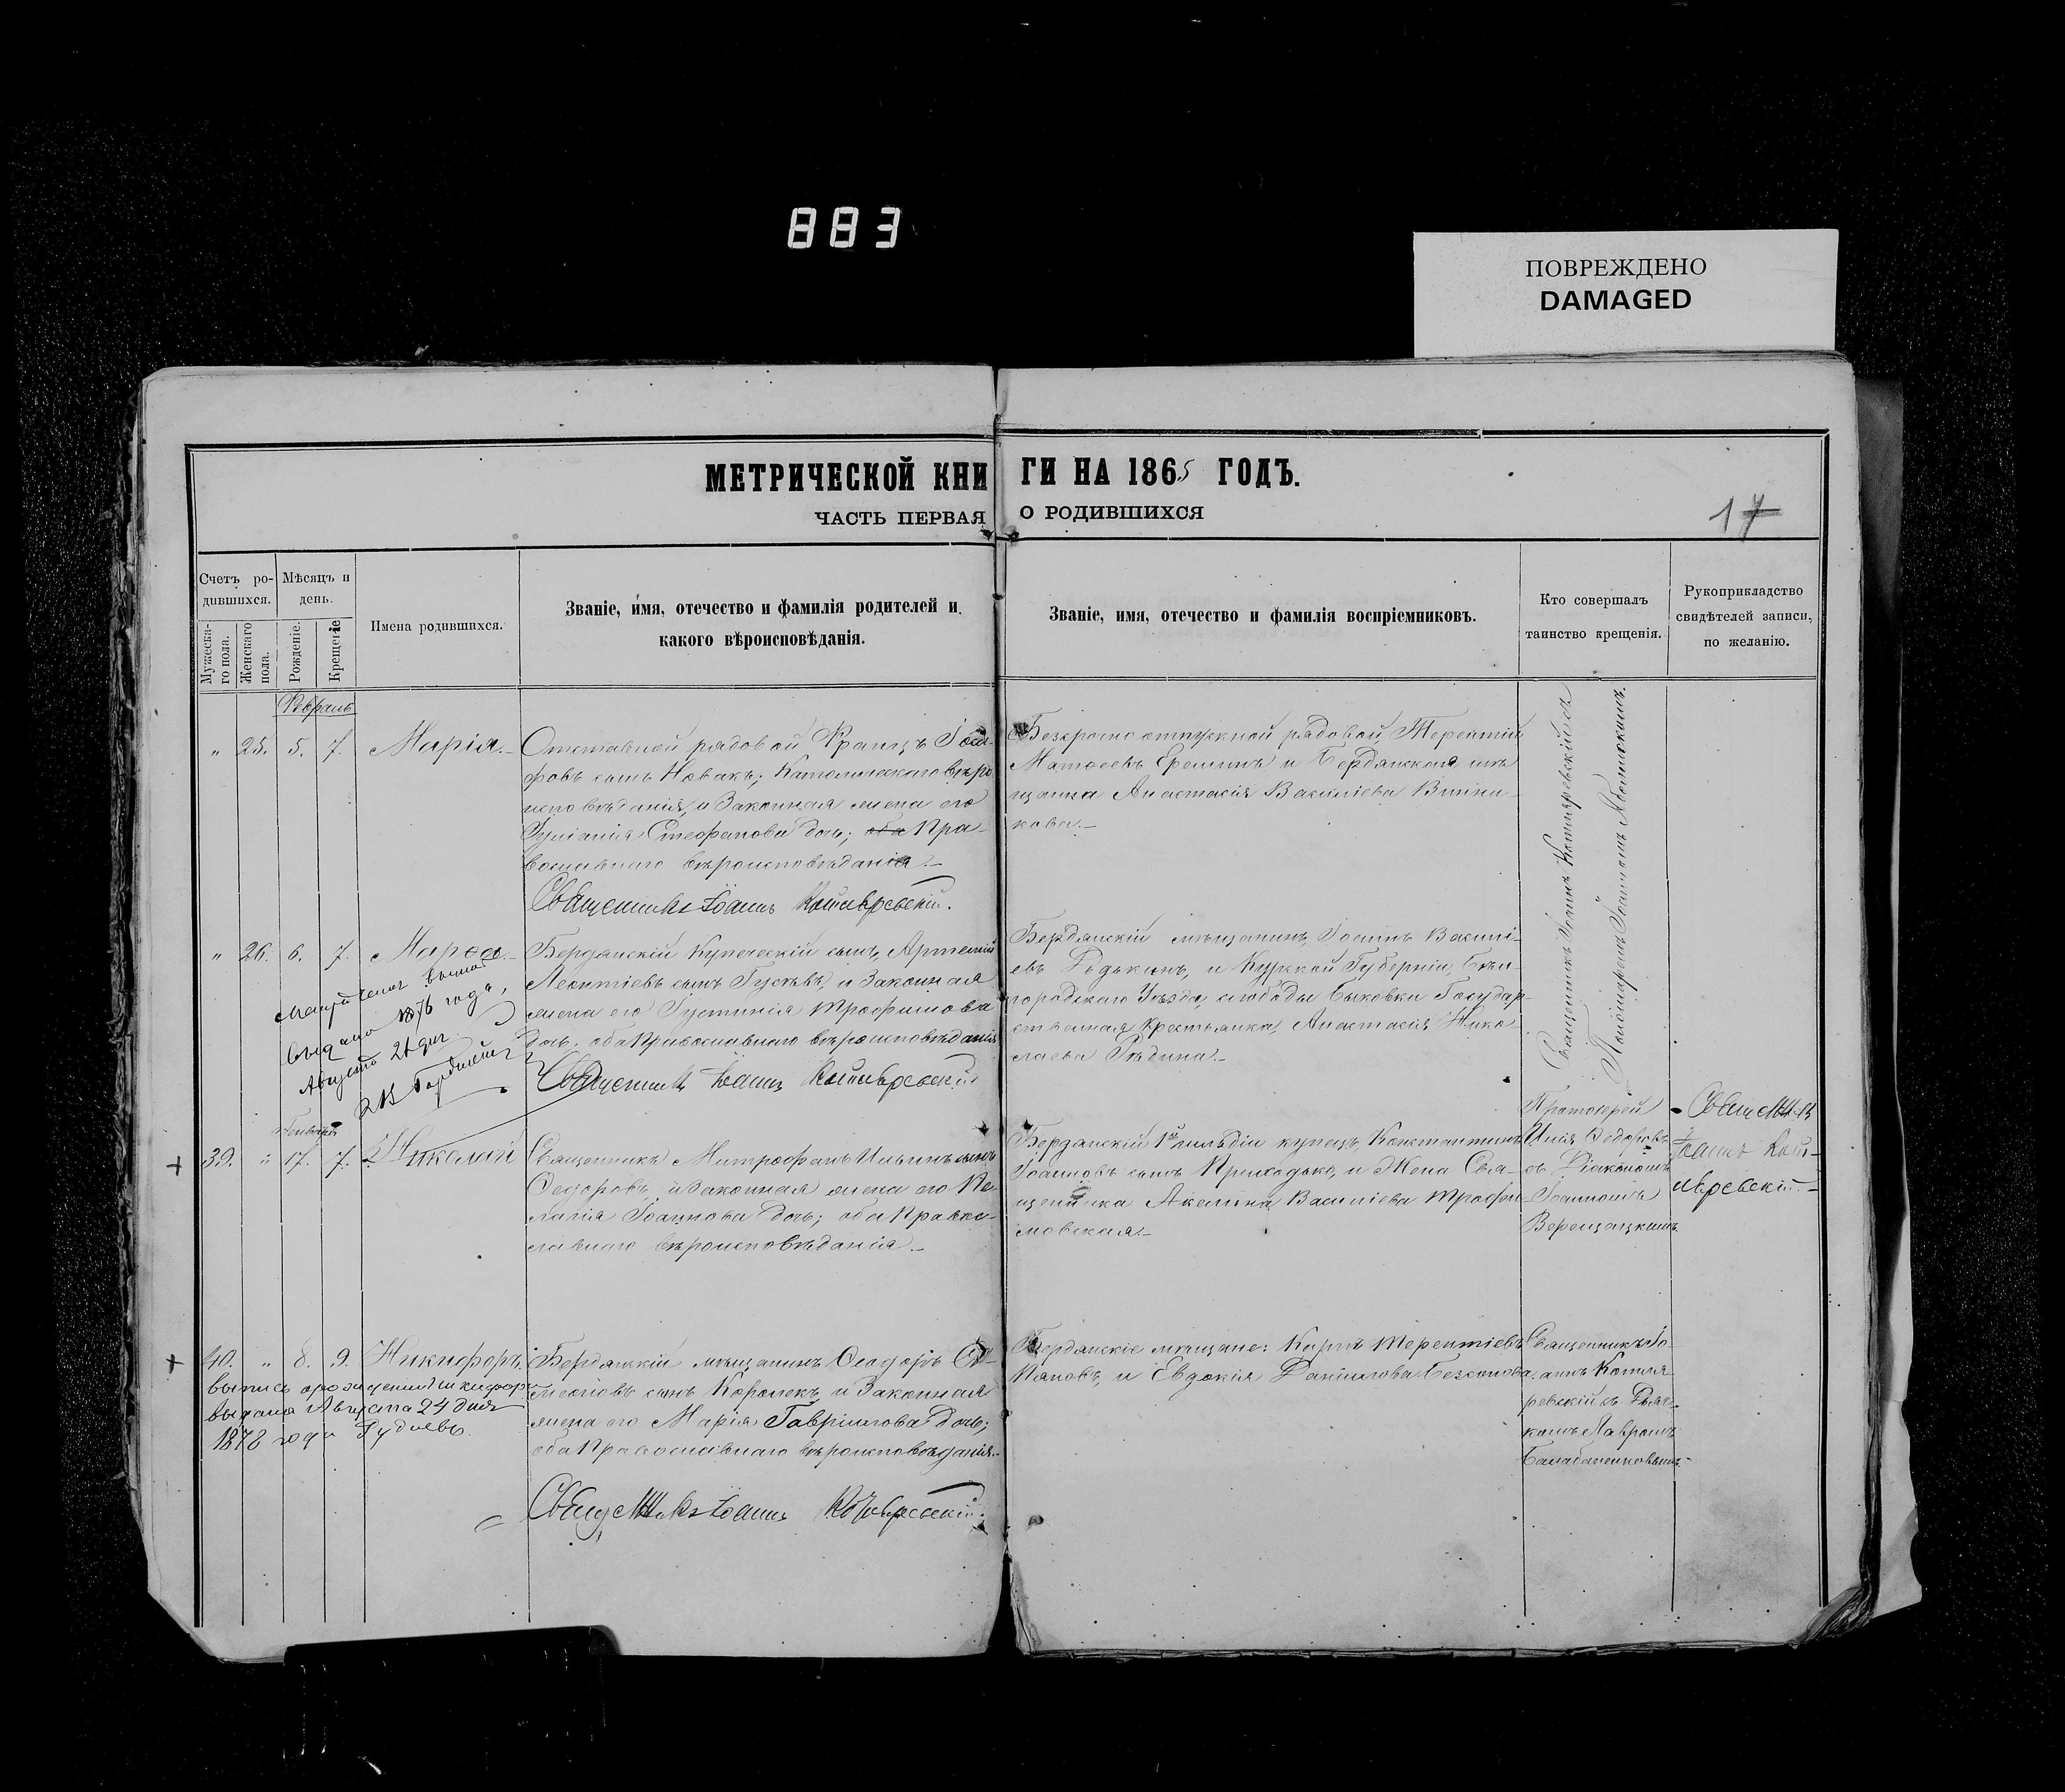 883
ПОВРЕЖДЕНО
DAMAGED
МЕТРИЧЕСКОЙ КНИГИ НА 1865 ГОДЪ.
ЧАСТЬ ПЕРВАЯ О РОДИВШИХСЯ
17
Счетъ родившихся.
Мужескаго пола.
Женскаго пола.
Мѣсяцъ и день.
Рожденіе.
Крещеніе
Имена родившихся.
Званіе, имя, отечество и фамилія родителей и
какого вѣроисповѣданія.
Званіе, имя, отечество и фамилія воспріемниковъ.
Кто совершалъ
таинство крещенія.
Рукоприкладство
свидѣтелей записи,
по желанію.
" 25. 5. 7. Марія.
Отставной рядовой Францъ Іоси-
фовъ сынъ Новакъ; Католическаго вѣро
исповѣданія, и Законная жена его
Іуліанія Стефанова дочь; оба Пра-
вославнаго вѣроисповѣданія.
Священникъ Іоаннъ Котляревскій.
Безсрочно отпускной рядовой Терентій
Матѳеевъ Ереминъ и Бердянская мѣ
щанка Анастасія Василіева
кова.
Священникъ Іоаннъ Котляревскій съ
Пономаремъ Іоанномъ
" 26. 6. 7.
Бердянскій Купеческій сынъ, Артемій
Леонтіевъ сынъ Гуськъ, и Законная
жена его Іустинія Трофимова
дочь; оба Православнаго вѣроисповѣданія
Священникъ Іоаннъ Котляревскій
выдано 1876 года,
Августа 21 дня
Бердянскій мѣщанинъ, Іоаннъ Василі-
евъ Редькинъ, и Курской Губерніи, Бѣл-
городскаго Уѣзда, слободы Быковки Государ-
ственная Крестьянка, Анастасія Нико
лаева
Генваря
39. " 17. 7. Николай
Священникъ Митрофанъ Ильинъ сынъ
Ѳедоровъ, и Законная жена его Пе-
лагія Іоаннова дочь; оба Право-
славнаго вѣроисповѣданія.
Бердянскій 1й гильдіи купецъ, Константинъ
Іоанновъ сынъ Приходько, и Жена Свя-
щенника Акелина Василіева Трофи-
мовская.
Протоіерей
Илія Ѳедоровъ
съ Діакономъ
Іоанномъ
Верещацкимъ
Священникъ
Іоаннъ Кот-
ляревскій
40. " 8. 9. Никифоръ.
Бердянскій мѣщанинъ Ѳеодоръ Си-
меоновъ сынъ Королекъ, и Законная
жена его Марія Гавріилова дочь;
оба Православнаго вѣроисповѣданія.
Священникъ Іоаннъ Котляревскій.
выпись о рожденіи Никифора
выдана Августа 24 дня
1878 года
Бердянскіе мѣщане: Карпъ Терентіевъ
и Евдокія Даніилова
Священникъ Іо-
аннъ Котля-
ревскій съ Дьяч-
комъ Лавромъ
Балабаненковымъ